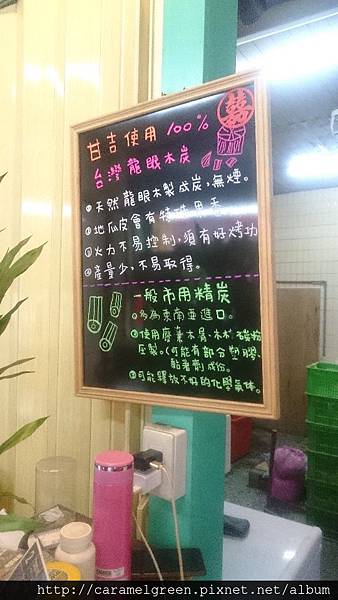 甘吉使用100%
台灣龍眼木炭
①天然龍眼木製成炭，無煙。
②地瓜皮會有特殊果香
③火力不易控制，須有好烤功
④產量少，不易取得。
一般市用精炭
①多為東南亞進口。
②使用廢棄木屑、木材、碳粉
壓製。(可能有部分塑膠、
黏著劑)成份。
③可能釋放不好的化學氣體。
http://caramelgreen.pixnet.net/album